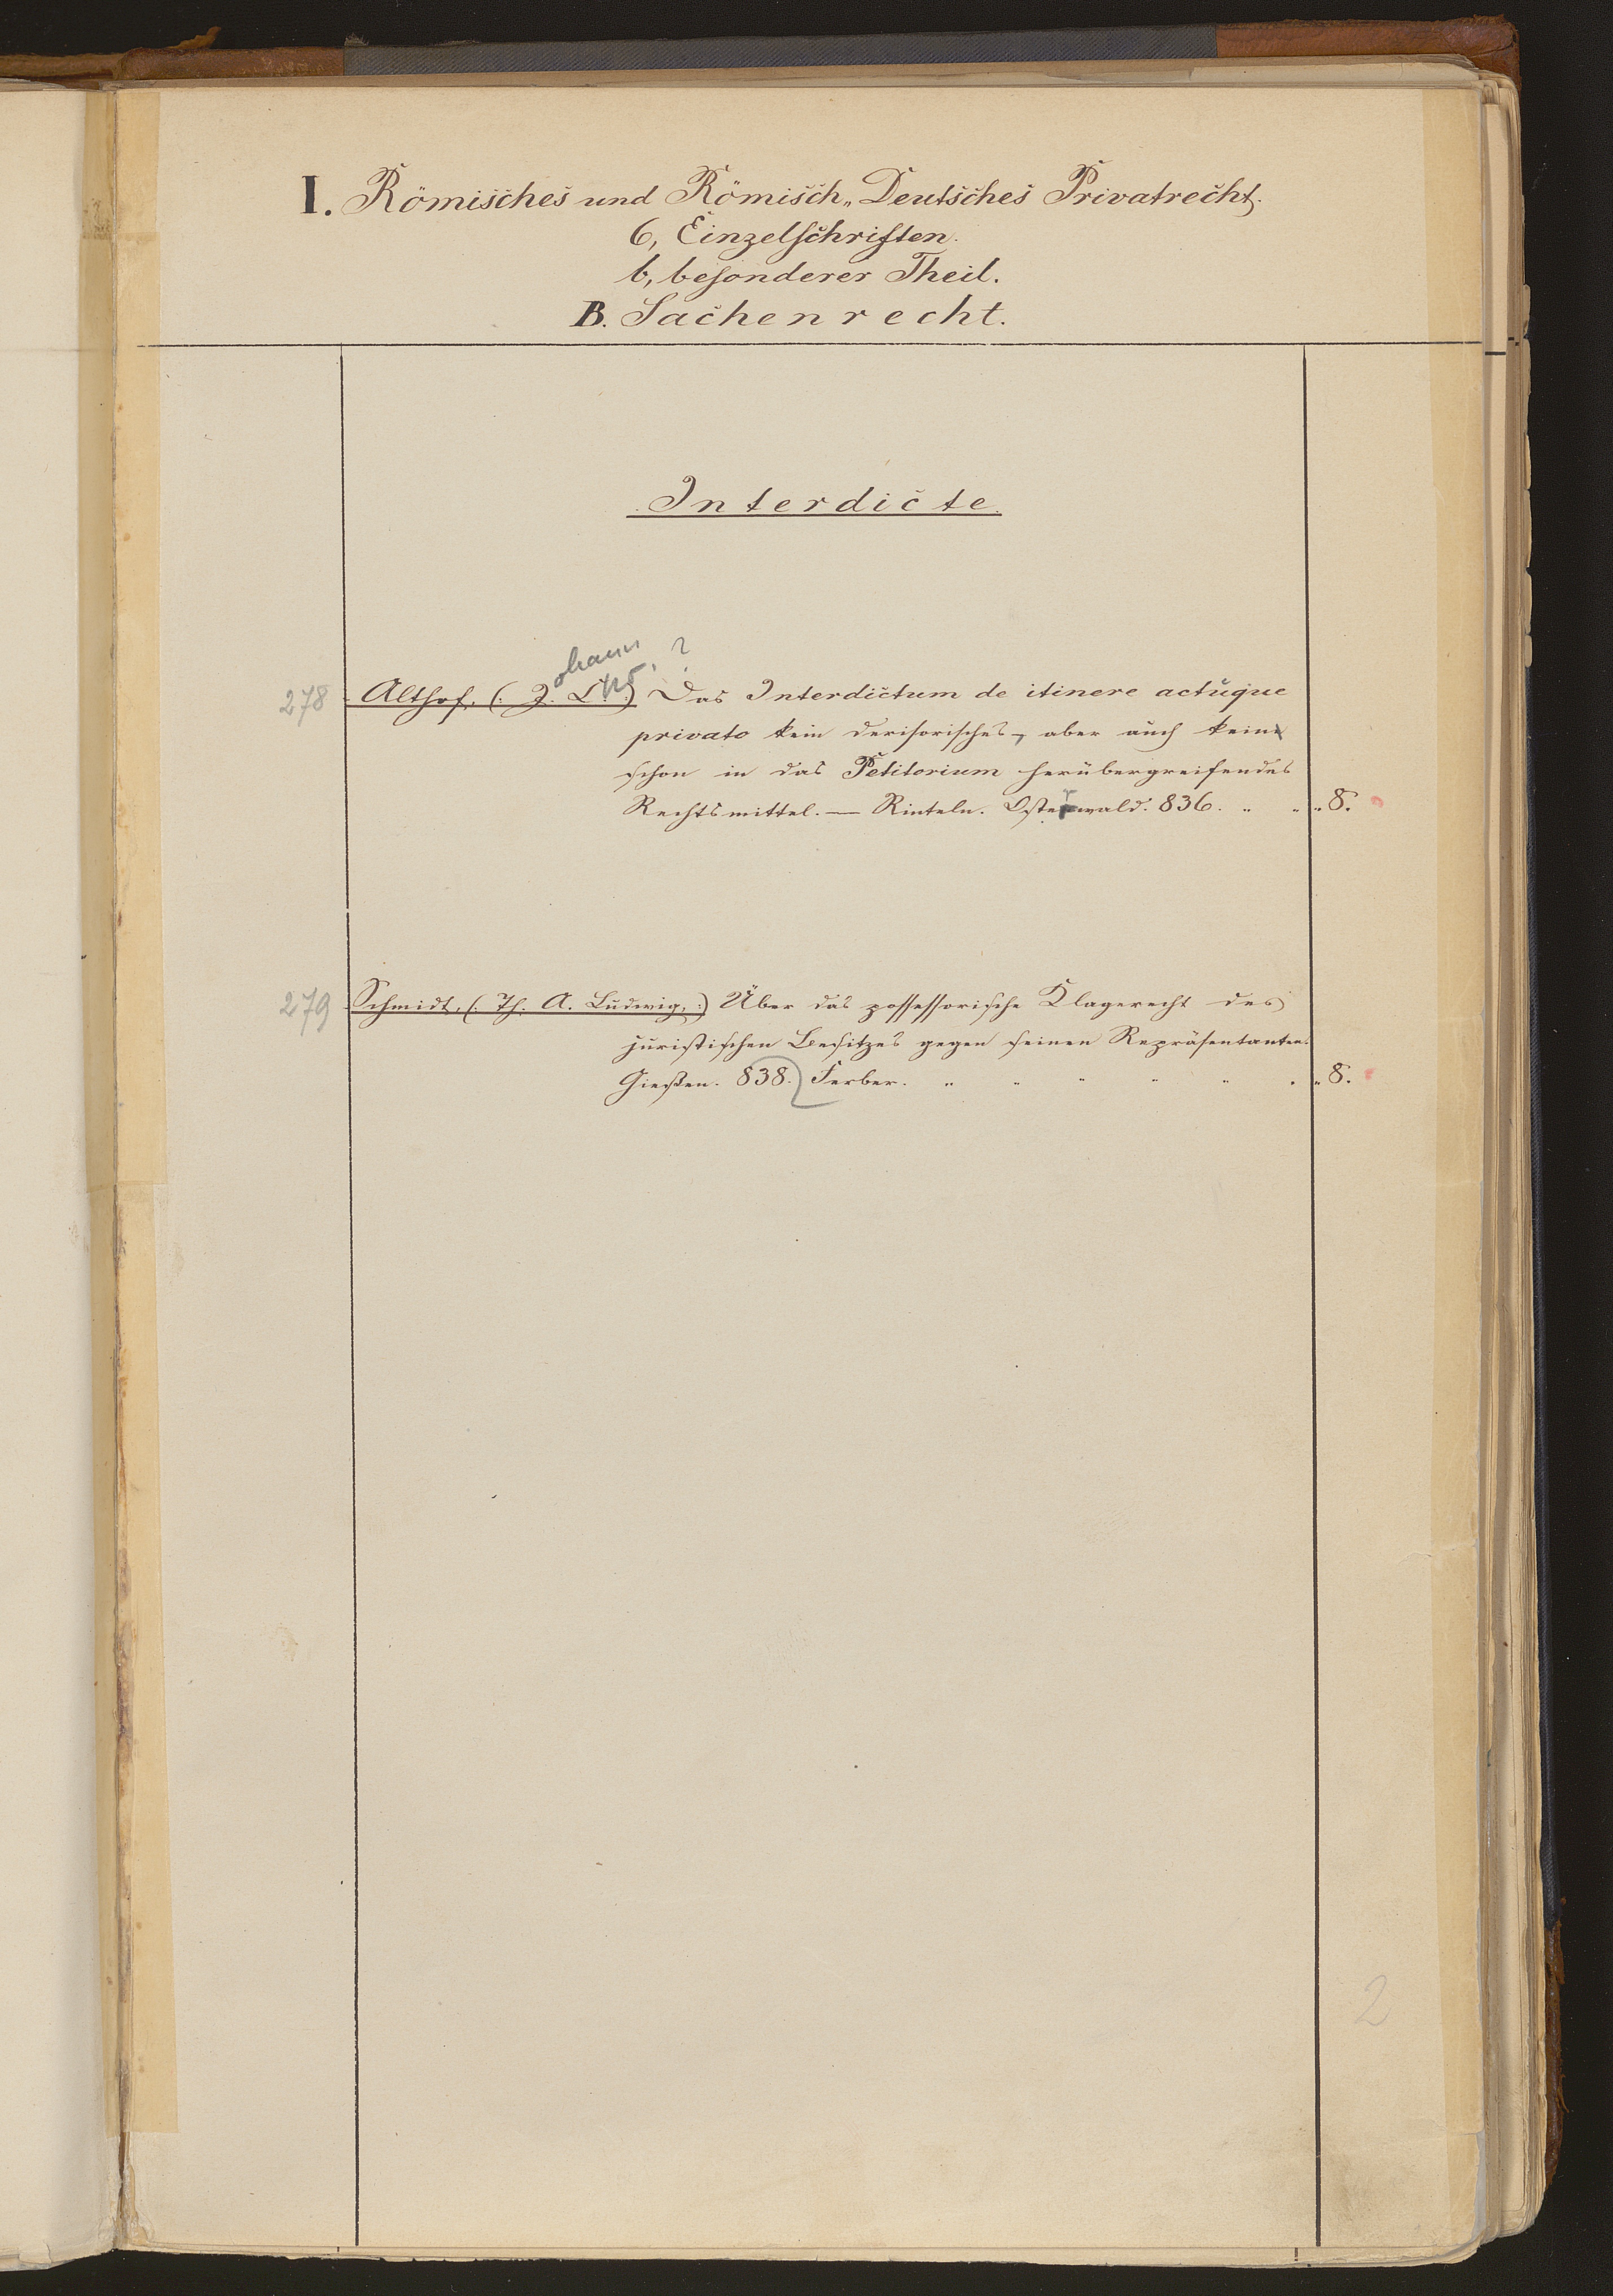 I. Römisches und Römisch„Deutsches Privatrecht.
6, Einzelschriften.
b, besonderer Theil.
B. Sachenrecht.
Interdicte.
ohann ?
278 Althof, (: J. L. :) Das Interdictum de itinere actuque
privato kein derisorisches, aber auch kein
schon in das Petitorium herübergreifendes
Rechtsmittel. — Rinteln. Osterwald. 836. „ „ „ 8.
279 Schmidt, (: Th. A. Ludwig, :) Über das possessorische Klagerecht des
juristischen Besitzes gegen seinen Repräsentanten.
Gießen. 838. Ferber. „ „ „ „ „ „ „ 8.
2